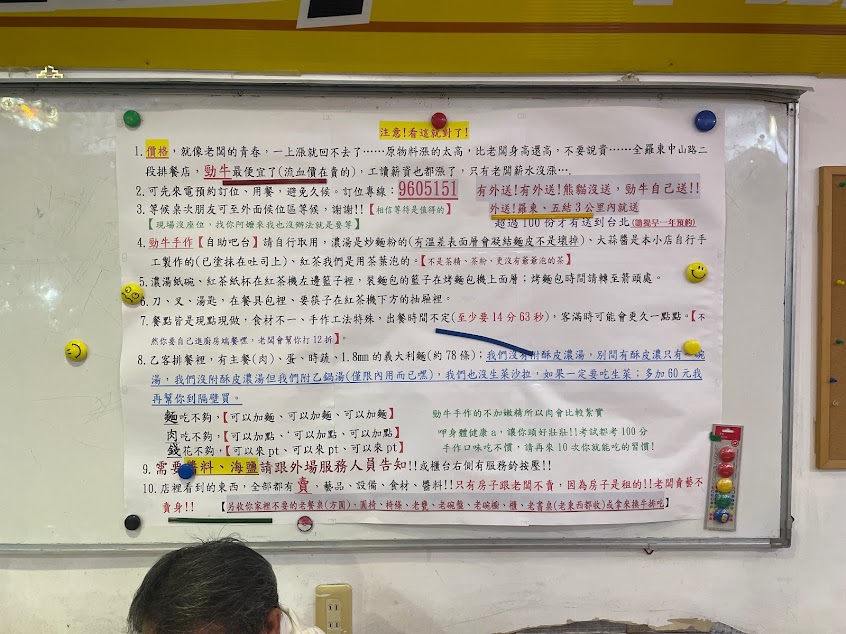 注意!看這就對了!
1.價格,就像老闆的青春,一上漲就回不去了……原物料漲的太高,比老闆身高還高,不要說貴……全羅東中山路二
段排餐店,勁牛最便宜了(流血價在賣的),工讀薪資也都漲了,只有老闆薪水沒漲…
2.可先來電預約訂位、用餐,避免久候。訂位專線:9605151
有外送!有外送!熊貓沒送,勁牛自己送!!
3.等候桌次朋友可至外面候位區等候,謝謝!!【相信等待是值得的】
外送!羅東、五結3公里內就送
【現場沒座位,我你阿嬤來我也沒辦法就是要等】
超過100份才有送到台北(請提早一年預約)
4.勁牛手作【自助吧台】請自行取用,濃湯是炒麵粉的(有溫差表面層會凝結麵皮不是壞掉)、大蒜醬是本小店自行手
工製作的(已塗抹在吐司上)、紅茶我們是用茶葉泡的。【不是茶精、茶粉,更沒有爺爺泡的茶】
5.濃湯紙碗、紅茶紙杯在紅茶機左邊籃子裡,裝麵包的籃子在烤麵包機上面層;烤麵包時間請轉至箭頭處。
6.刀、叉、湯匙,在餐具包裡、要筷子在紅茶機下方的抽屜裡。
7.餐點皆是現點現做,食材不一、手作工法特殊,出餐時間不定(至少要14分63秒),客滿時可能會更久一點點。【不
然你要自己進廚房端餐嘿,老闆會幫你打12折】
8.乙客排餐裡,有主餐(肉)、蛋、時蔬、1.8mm的義大利麵(約78條);我們沒有附酥皮濃湯,別間有酥皮濃只有一碗
湯,我們沒附酥皮濃湯但我們附乙鍋湯(僅限內用而已嘿),我們也沒生菜沙拉,如果一定要吃生菜;多加60元我
再幫你到隔壁買。
麵吃不夠,【可以加麵、可以加麵、可以加麵】
勁牛手作的不加嫩精所以肉會比較紮實
肉吃不夠,【可以加點、可以加點、可以加點】
呷身體健康a,讓你頭好壯壯!!考試都考100分
錢花不夠,【可以來pt、可以來pt、可以來pt】
手作口味吃不慣,請再來10次你就能吃的習慣!
9.需要醬料、海鹽請跟外場服務人員告知!!或櫃台右側有服務鈴按壓!!
10.店裡看到的東西,全部都有賣,藝品、設備、食材、醬料!!只有房子跟老闆不賣,因為房子是租的!!老闆賣藝不
賣身!!
【另收你家裡不要的老餐桌(方圓)、圓椅、椅條、老甕、老碗盤、老碗櫥、櫃、老書桌(老東西都收)或拿來換牛排吃】